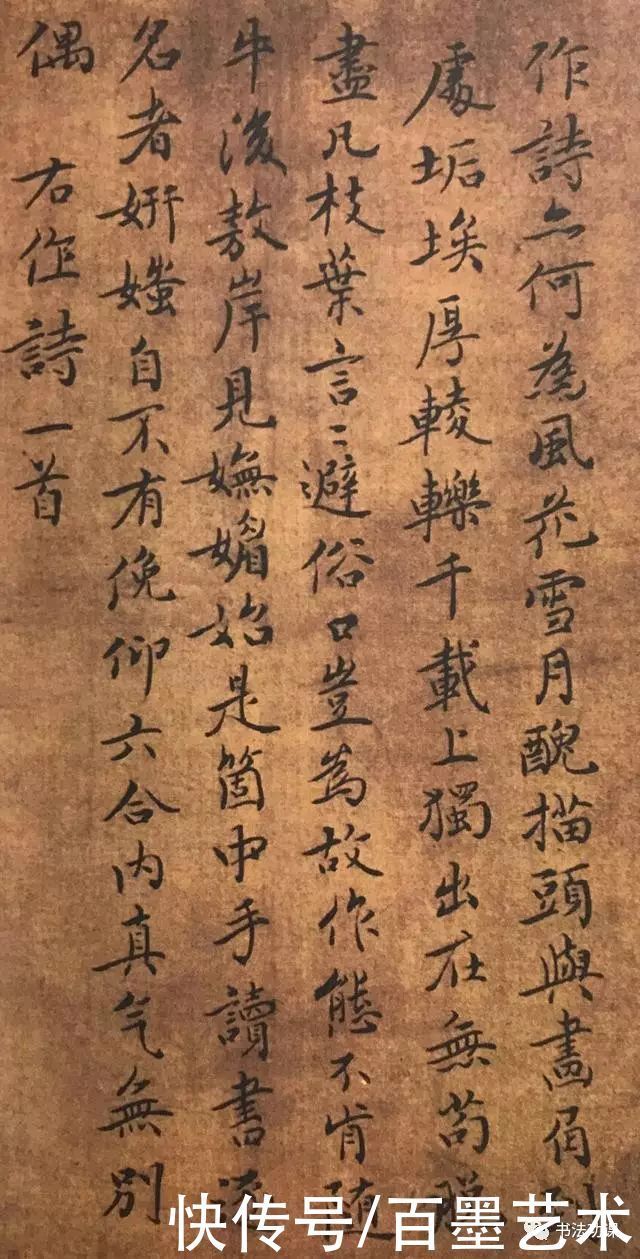 作詩亦何為風花雪月醜描頭與畫角到
處垢埃厚輘轢千載上獨出在無苟脱
盡凡枝葉言〻避俗口豈為故作態不肯隨
牛後敖岸見嫵媚始是箇中手讀書
名者妍媸自不有俛仰六合内真气無別
偶 右作詩一首
快传号/百墨艺术